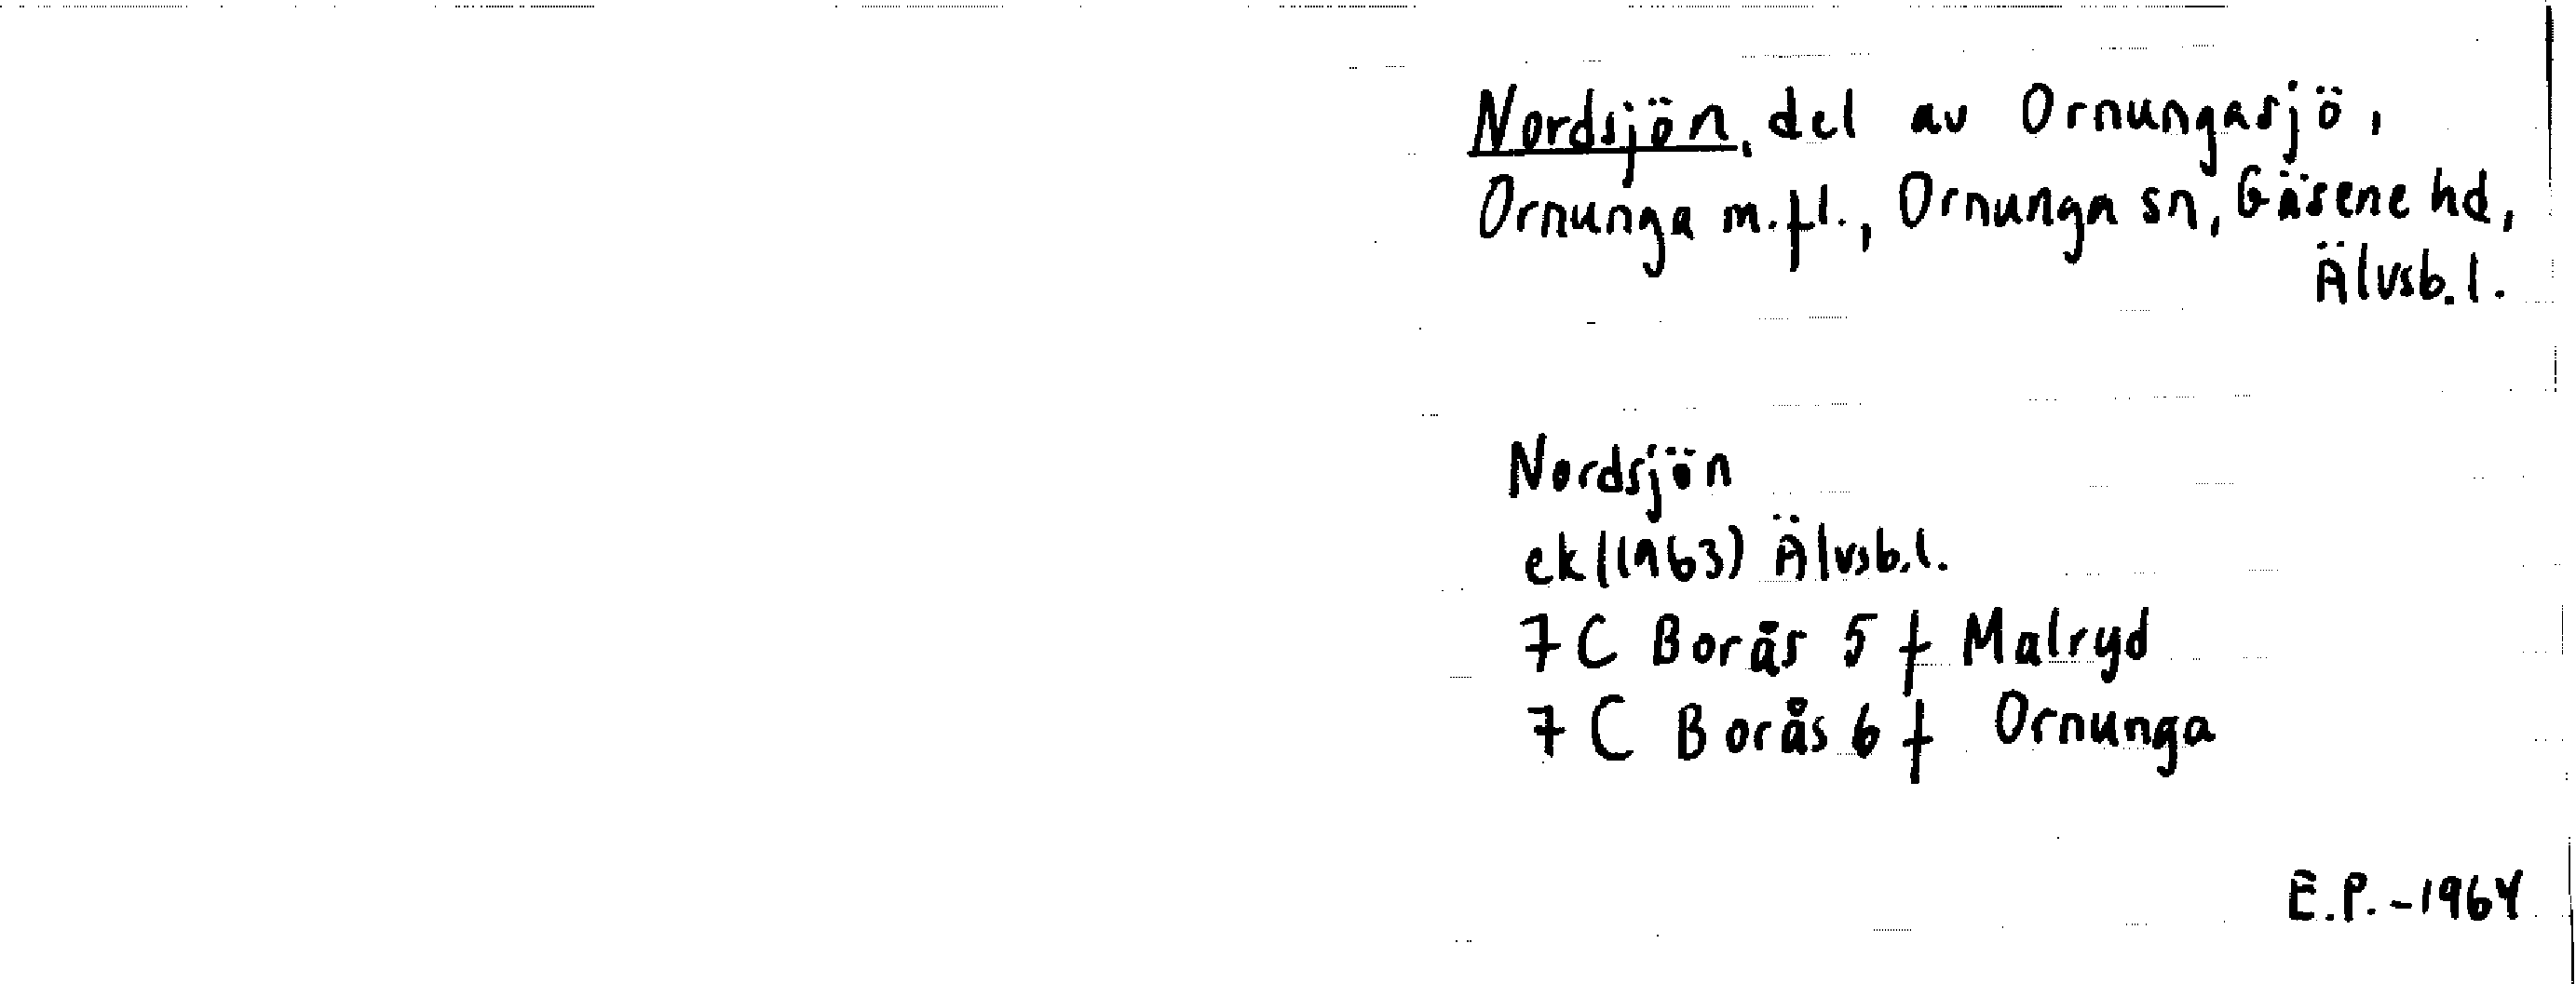 Nordsjön, del av Ornungasjö,
Ornunga m.fl., Ornunga sn, Gäsene hd,
Älvsb. l.
Nordsjön
ek (1963) Älvsb. l.
7 C Borås 5 f Malryd
7 C Borås 6 f Ornunga
E.P. - 1964